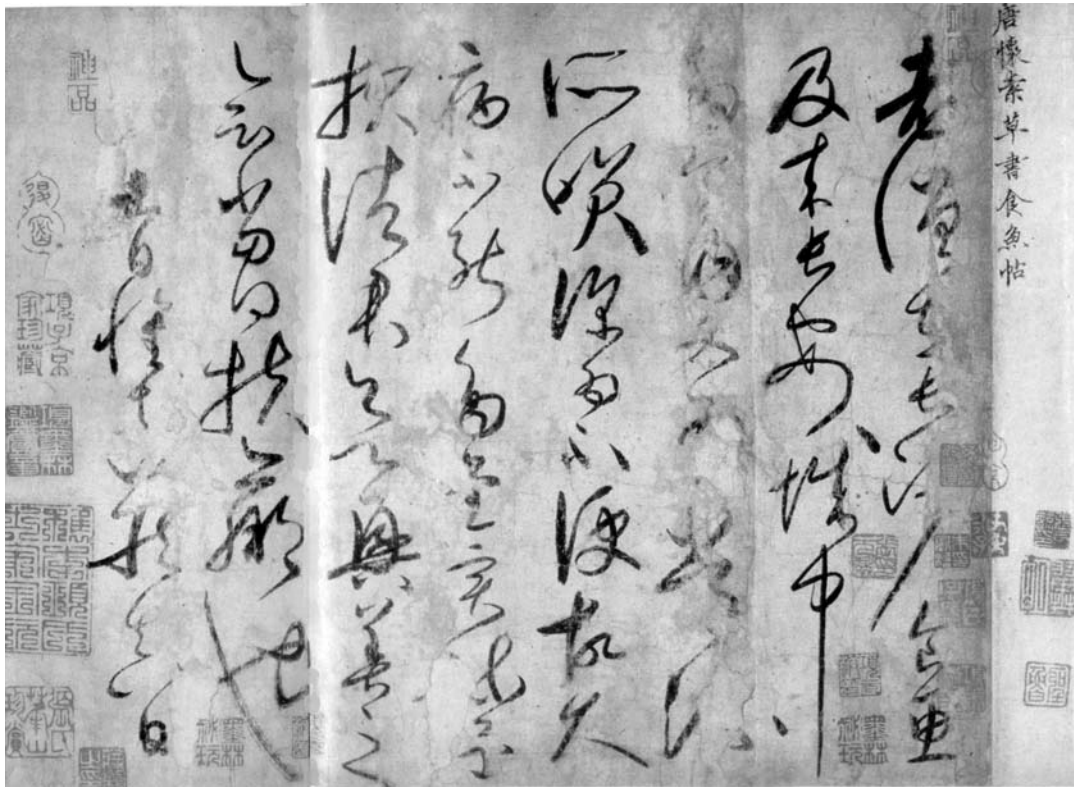 唐懷素草書食魚帖
老僧在長沙食魚
及來長安城中
多食肉又為常流
所笑深為不便故久
病不能多書實疏還
報諸君欲興善之
會當得扶羸也
日懷素藏真白
神品
項子京家珍藏
墨林秘玩